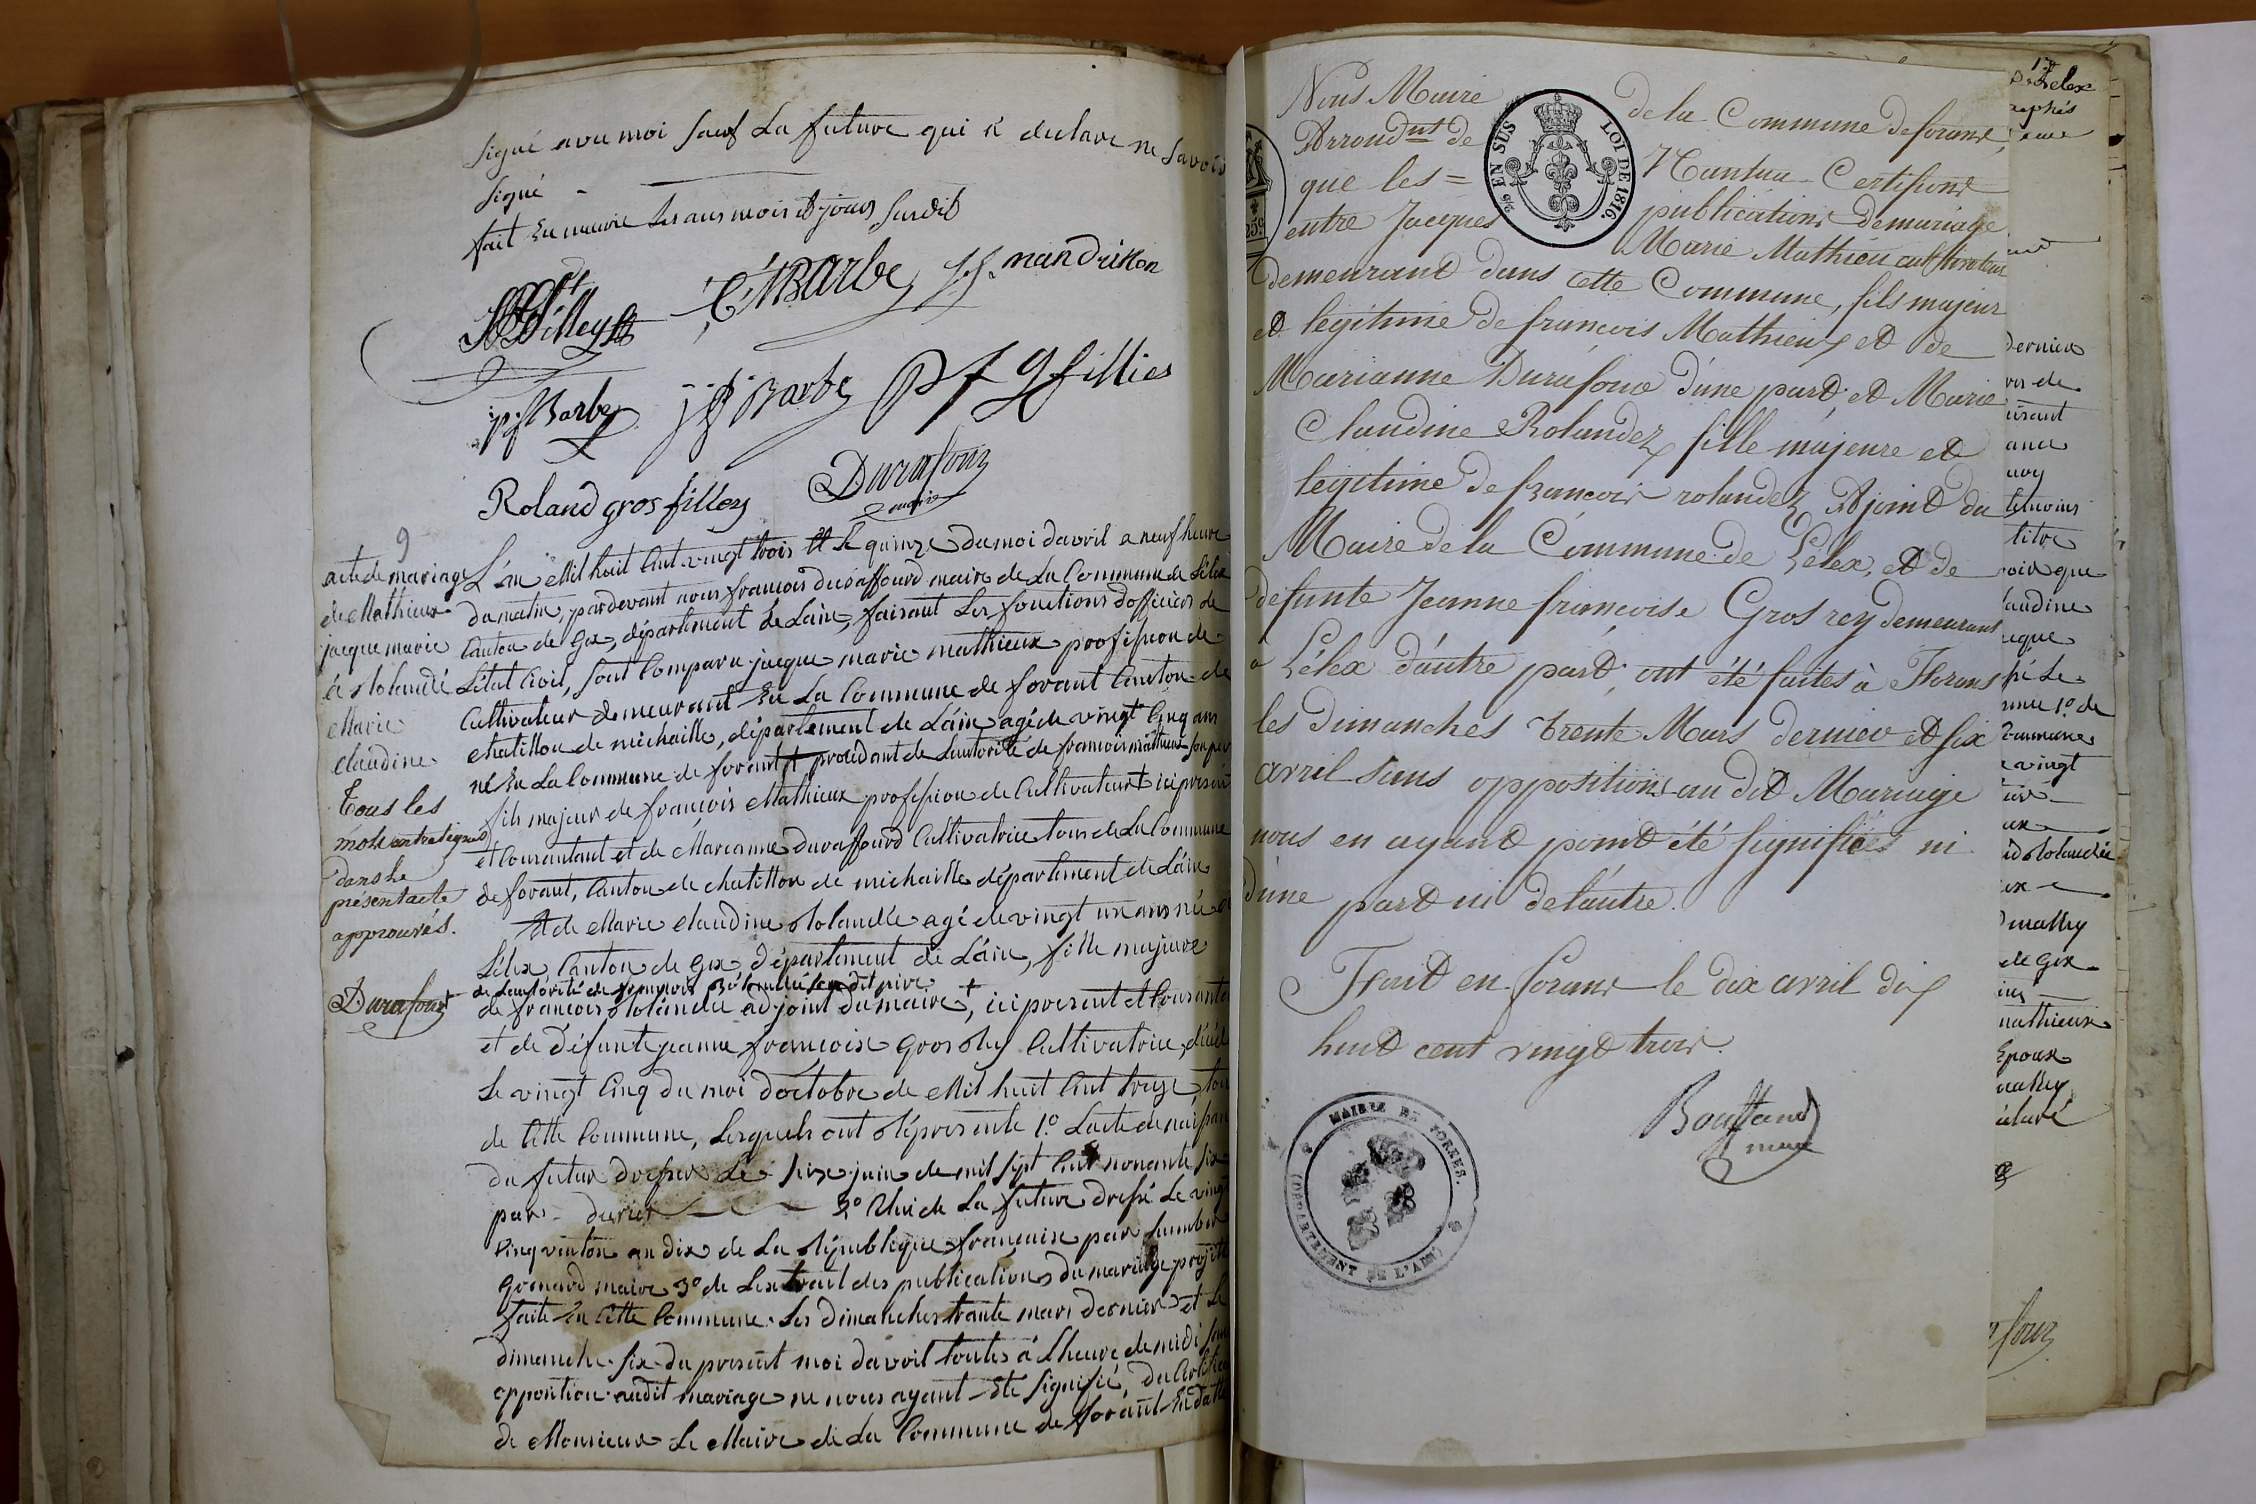 signé avec moi sauf La future qui a declaré ne savoir
signé -
fait En mairie les ans mois et jours susdit
C M Barbe J. f. mandrillon
j p f Barbe j f Barbe p f g fillies
Roland gros fillex Durafour
maire
9
acte de mariage
de Mathieux
jacque marie
et Rolandé
Marie
claudine
Tous les
mots contresignés
dans le
présent acte
approuvés.
Durafour
L'an Mil huit Cent vingt trois et le quinze du moi davril a neuf heure
du matin, pardevant nous francois duraffourd maire de La Commune de Lélex
Canton de Gex, département de Lain, faisant Les fonctions d'officier de
Létat Civil, sont Comparu jacque marie mathieux profession de
Cultivateur demeurant En La Commune de forant Canton de
chatillon de michaille, département de Lain agé de vingt Cinq ans
né En La Commune de forant procédant de Lautorité de francois mathieux son père
fils majeur de françois Mathieux profession de Cultivateur ici present
et Consentant et de Marianne duraffourd Cultivatrice tous de La Commune
de forant, Canton de chatillon de michaille département de Lain
Et de Marie claudine Rolandée agé de vingt un ans née
Lélex Canton de Gex, département de Lain, fille majeure
de Lautorité de francois Rolandée son dit père
de francois Rolandée adjoint du maire +, ici present et Consentant
et de défunte jeanne francoise Gros Rey Cultivatrice, décédé
Le vingt Cinq du moi doctobre de Mil huit Cent treize, tous
de Cette Commune, Lesquels ont Représenté 1.º Lacte de naissance
du futur dressé Le six juin de mil sept Cent nonante six
par 2º Celui de La future dressé Le vingt
Cinq ventôse an dix de La République française par humbert
Grenard maire 3º de Lextrait des publications du mariage projetté
faite En Cette Commune Les dimanches trante mars dernier et Le
dimanche six du présent moi davril toutes à Lheure de midi sans
opposition audit mariage ne nous ayant Eté signifié, du Certificat
de Monsieur Le Maire de La Commune de forant En datte
Nous Maire de la Commune de forans
Arrondnt de Nantua Certifions
que les = publications de mariage
entre Jacques Marie Mathieu cultivateur
demeurant dans cette Commune, fils majeur
et légitime de françois Mathieu et de
Marianne Durafour d'une part, et Marie
Claudine Rolandez fille majeure et
légitime de françois rolandez Adjoint du
Maire de la Commune de Lélex, et de
defunte Jeanne françoise Gros rey demeurant
a Lélex d'autre part, ont été faites à Forans
les dimanches trente Mars dernier et six
avril sans opposition au dit Mariage
nous en ayant point été signifiés ni
d'une part ni de l'autre.
Fait en forans le dix avril dix
huit cent vingt trois.
Bouffand
maire
2/10 EN SUS LOI DE 1816.
25c.
MAIRIE DE FORENS.
(DÉPARTEMENT DE L'AIN)
Lelex
dernier
vis de
temoins
titre
voir que
claudine
nne 1º de
Commune
vingt
de Gex
mathieux
Epoux